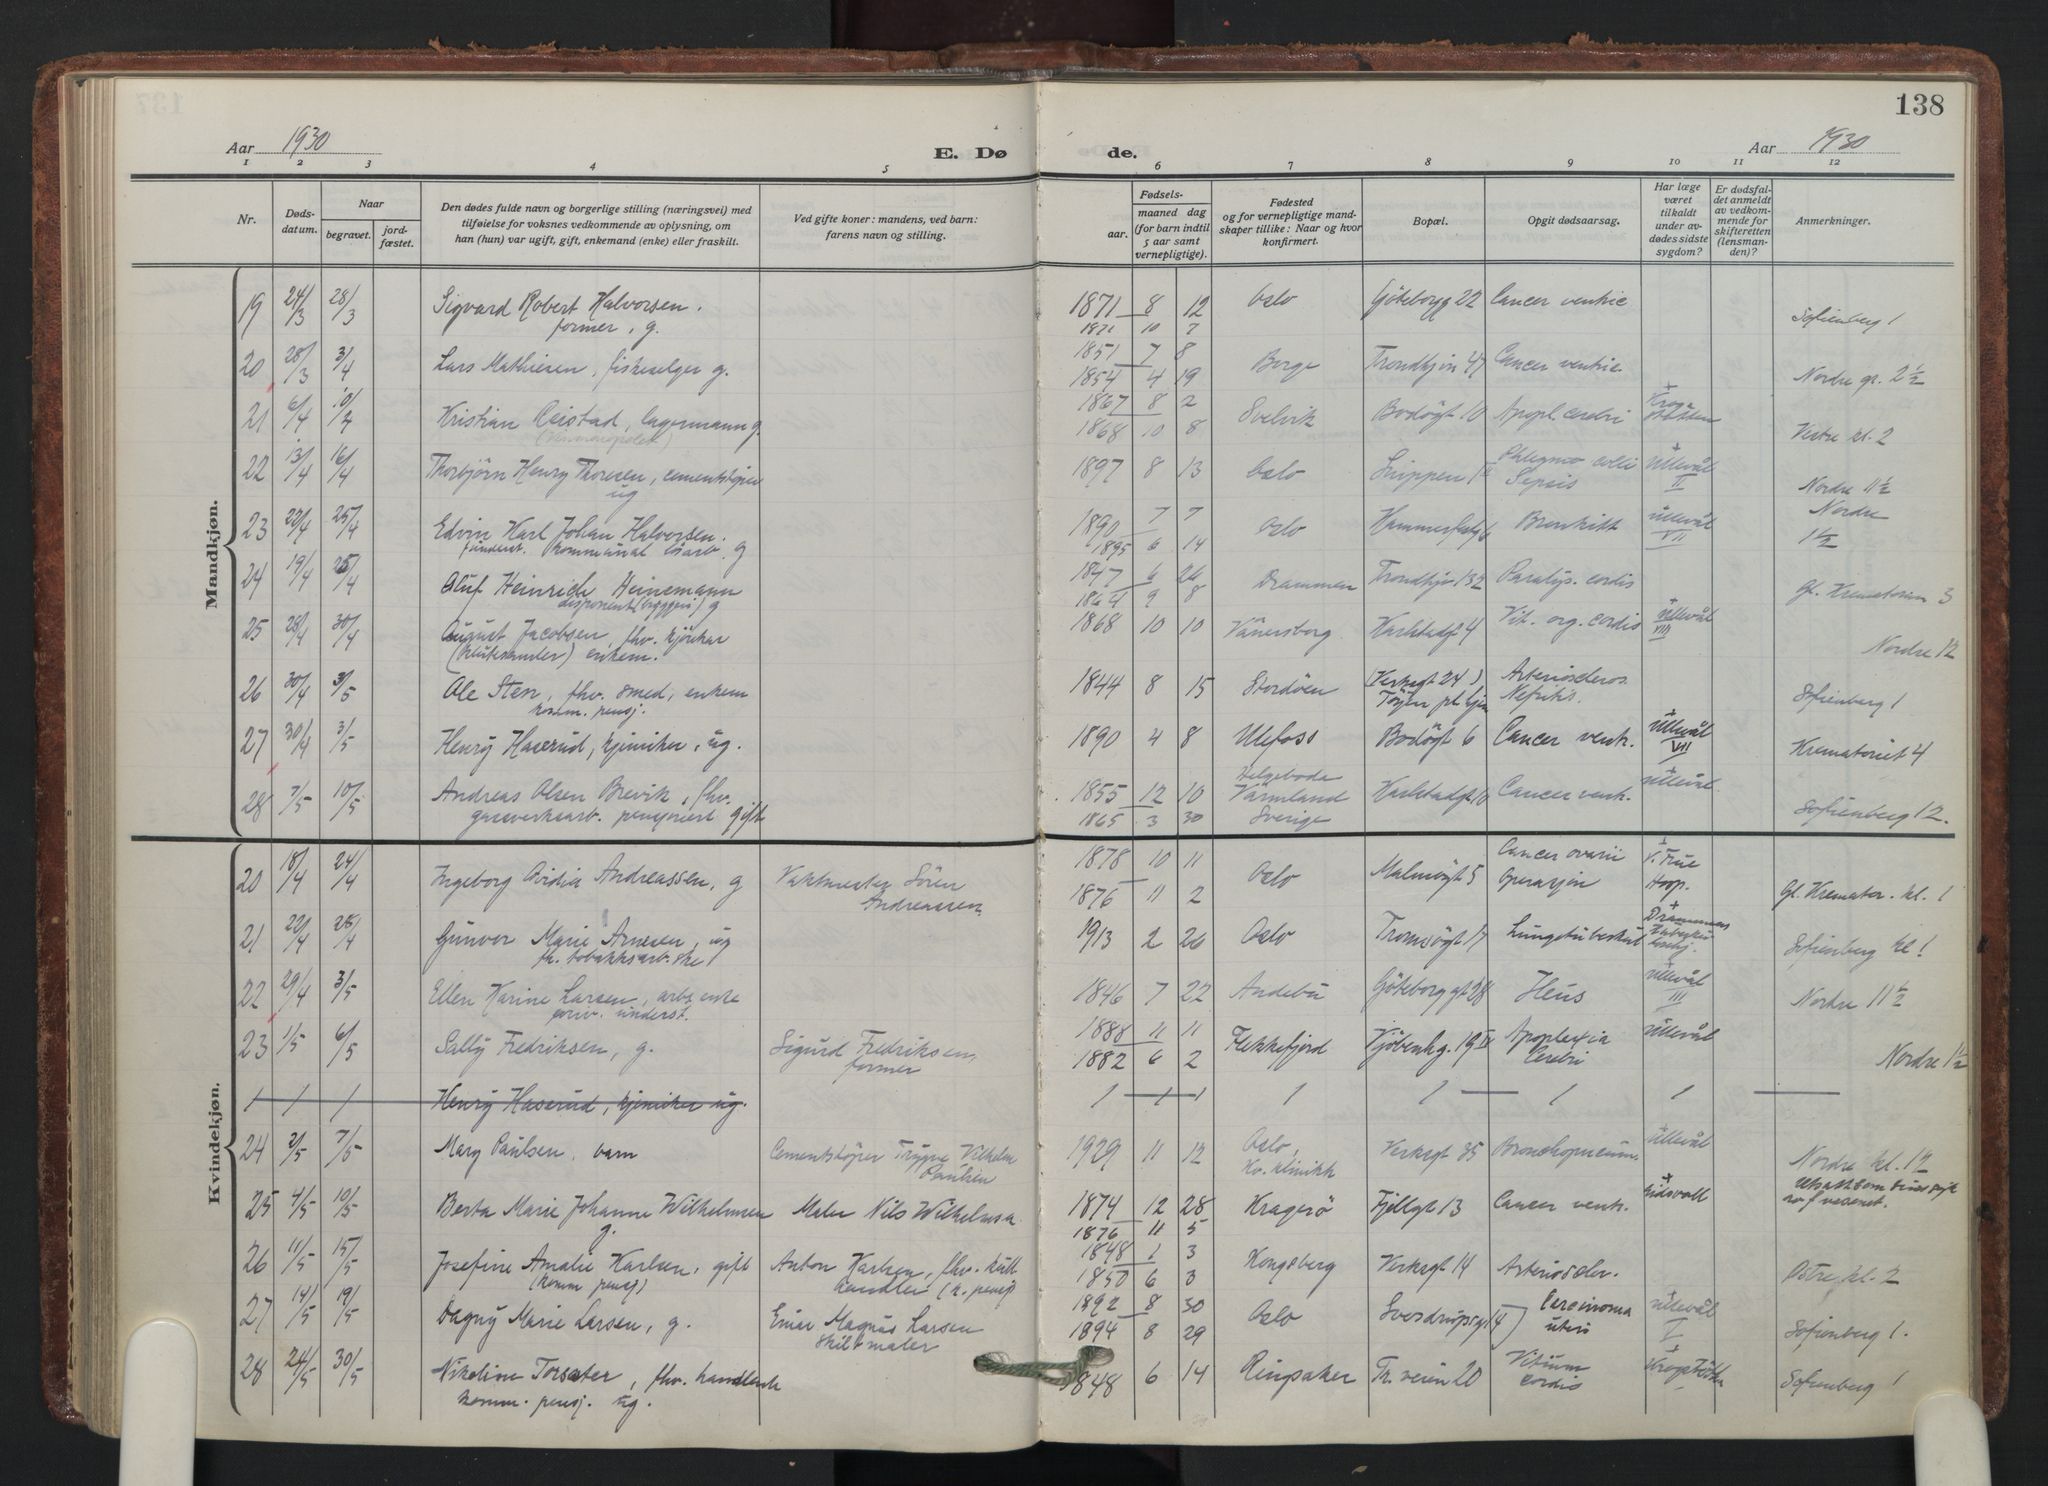 138
Aar 1930
E. Døde.
Aar 1930
1 2 3 4 5 6 7 8 9 10 11 12
Nr.
Døds-
datum.
Naar
begravet.
jord-
fæstet.
Den dødes fulde navn og borgerlige stilling (næringsvei) med
tilføielse for voksnes vedkommende av oplysning, om
han (hun) var ugift, gift, enkemand (enke) eller fraskilt.
Ved gifte koner: mandens, ved barn:
farens navn og stilling.
Fødsels-
aar.
maaned dag
(for barn indtil
5 aar samt
vernepligtige).
Fødested
og for vernepligtige mand-
skaper tillike: Naar og hvor
konfirmert.
Bopæl.
Opgit dødsaarsag.
Har læge
været
tilkaldt
under av-
dødes sidste
sygdom?
Er dødsfal-
det anmeldt
av vedkom-
mende for
skifteretten
(lensman-
den)?
Anmerkninger.
Mandkjøn.
19 24/3 28/3 Sigvard Robert Halvorsen. 1871 8 12 Oslo Göteborgg 22 Cancer ventric
former, g. 1871 10 7 Sofienberg 1
20 28/3 3/4 Lars Mathiesen, fiskeselger g. 1851 7 8 Borge Trondhjm 47 Cancer ventric.
1854 4 19 Nordre gr. 2 1/2
21 6/4 10/4 Kristian Reistad, lagermann g. 1867 8 2 Svelvik Bodögt 10 Apopl. cerebri
1868 10 8 Vestre kl. 2
22 13/4 16/4 Thorbjörn Henry Thoresen, cementstöper 1897 8 13 Oslo Phlegmo colli Ullevål
ug Sepsis II Nordre 11 1/2
23 22/4 25/4 Edvin Karl Johan Halvorsen. 1892 7 7 Oslo Hammerfestg 6 Bronkitt Ullevål Nordre
kommunal g 1895 6 14 VII 1 1/2
24 19/4 25/4 Oluf Heinrich Heinemann 1847 6 26 Drammen Trondhjm 132 Paralys. cordis
disponent (bryggeri) g 1864 9 8 Gl. Krematorium 3
25 28/4 30/4 August Jacobsen, fhv. kjörekar 1868 10 10 Vänersborg Karlstadgt 4 Vit. org. cordis + Ullevål
enkem. VIII Nordre 12
26 30/4 3/5 Ole Sten, fhv. smed, enkem 1844 8 15 Stordöen (Verksgt 24) Arterioscleros.
komm. pensj. Töyen pl hjem Nefritis. Sofienberg 1
27 30/4 3/5 Henry Haserud, kjemiker, ug. 1890 4 8 Ulefoss Bodögt 6 Cancer ventr. + Ullevål
VII Krematoriet 4
28 7/5 10/5 Andreas Olsen Brevik, fhv. 1855 12 10 Värmland Karlstadgt 10 Cancer ventr. + Ullevål
gassverksarb. pensjonert gift 1865 3 30 Sverige Sofienberg 12.
Kvindekjøn.
20 18/4 24/4 Ingeborg Ovidia Andreassen, g Vaktmester Sören 1878 10 11 Oslo Malmögt 5 Cancer ovarii + V. Frue
Andreassen 1876 11 2 Operasjon Hosp. Gl. Kremator. kl. 1
21 22/4 28/4 Gunvor Marie Arnesen, ug 1913 2 26 Oslo Tromsögt 17 Lungetuberkul + Drammens
fh. tobakksarb.ske Sofienberg kl 1
22 29/4 3/5 Ellen Karine Larsen, arb. enke 1846 7 22 Andebu Göteborggt 28 Ileus + Ullevål
priv. underst. III Nordre 11 1/2
23 1/5 6/5 Sally Fredriksen, g. Sigurd Fredriksen, 1888 11 11 Flekkefjord Kjöbenhg. 19 IV Apoplexia Ullevål
former 1882 6 2 Cerebri Nordre 1 1/2
Henry Haserud, kjemiker ug.
24 2/5 7/5 Mary Paulsen, barn Cementstöper Trygve Vilhelm 1929 11 12 Oslo, Verksgt 35 Bronchopneum. Ullevål
Paulsen Kv. klinikk Nordre kl. 12
25 4/5 10/5 Berta Marie Johanne Wilhelmsen Maler Nils Wilhelmsen 1874 12 28 Kragerö Fjellgt 13 Cancer ventr. + Eidsvoll
g. 1876 11 5
26 11/5 15/5 Josefine Amalie Karlsen, gift Anton Karlsen, fhv. kull 1848 1 3 Kongsberg Verksgt 14 Arterioscler.
(komm pensj) handler (k. pensj) 1850 6 3 Östre kl. 2
27 14/5 19/5 Dagny Marie Larsen, g. Einar Magnus Larsen 1892 8 30 Oslo Sverdrupsgt 14 Carcinoma Ullevål
skiltmaler 1894 8 29 uteri I Sofienberg 1.
28 24/5 30/5 Nikoline Torsæter, fhv. handlende 1848 6 14 Ringsaker Th. veien 20 Vitium + Krogstötten
komm. pensj. ug. cordis Sofienberg 1